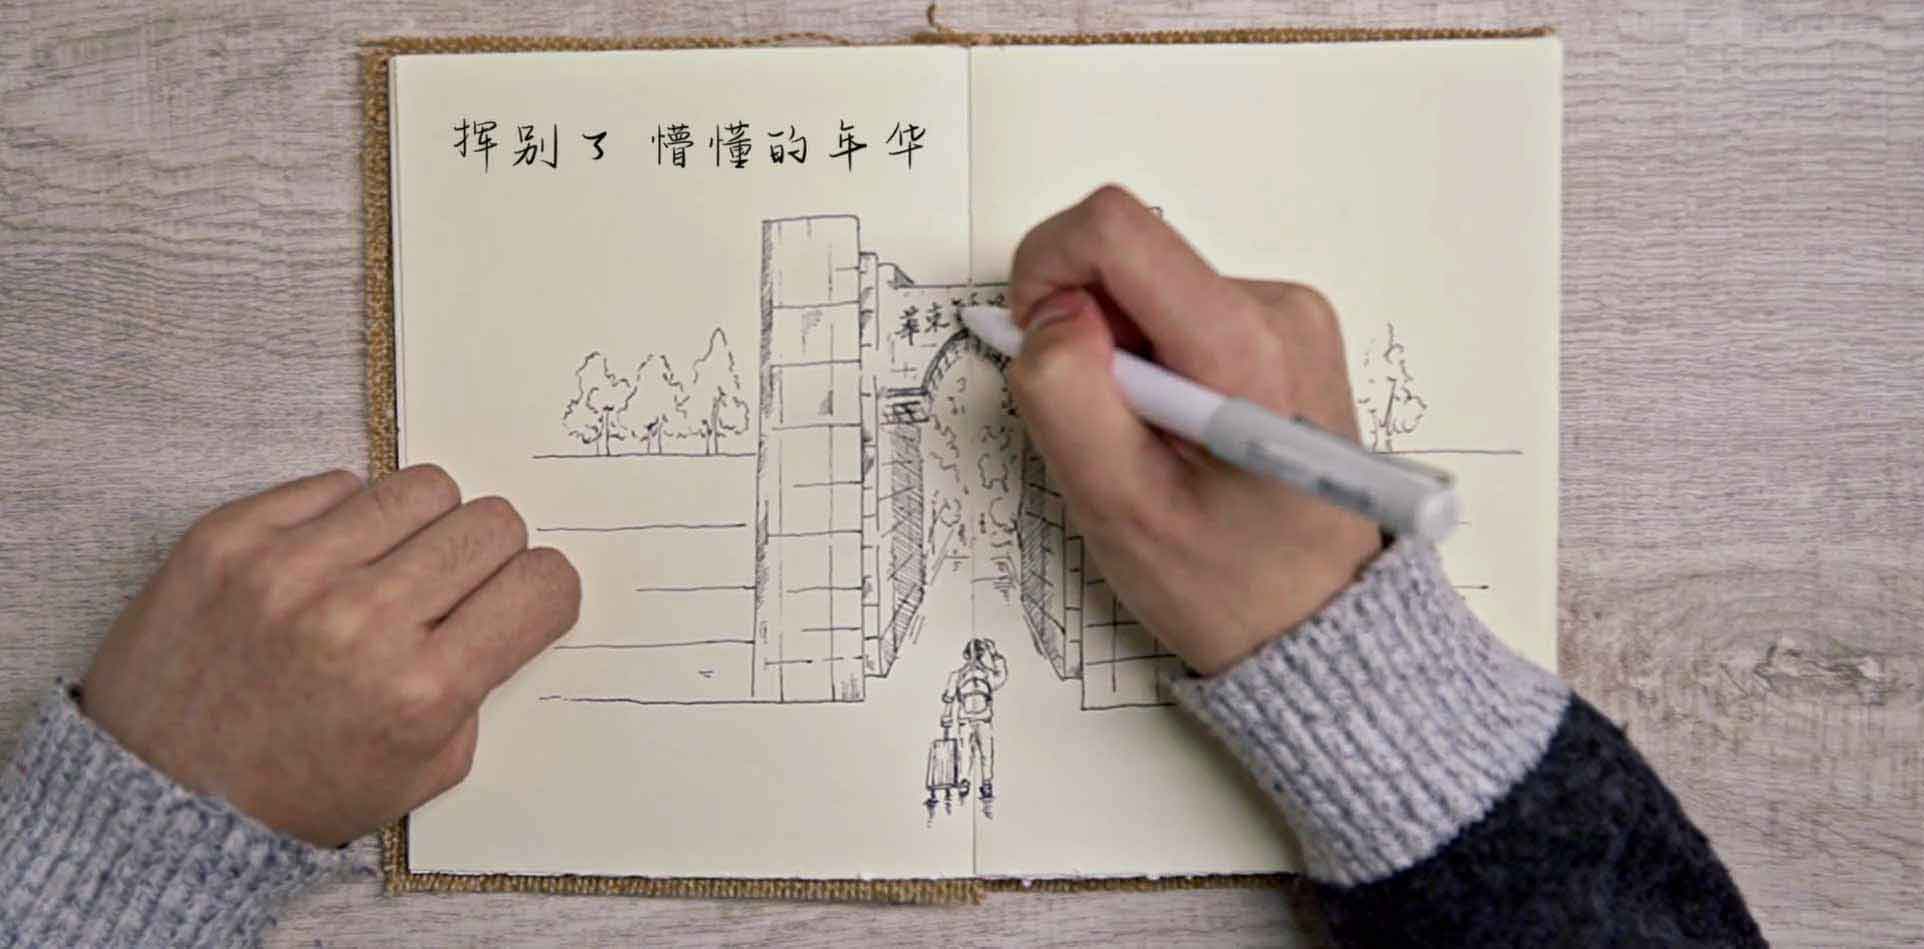 挥别了 懵懂的年华
華東